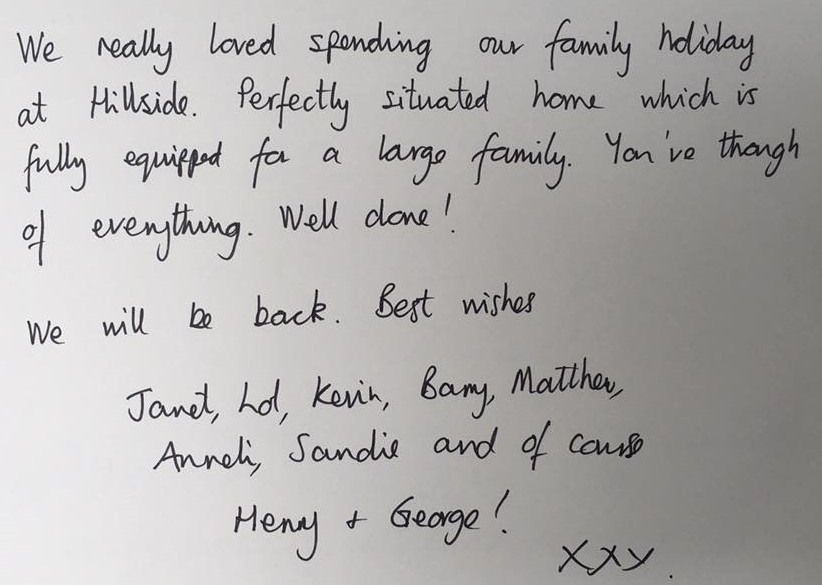 We really loved spending our family holiday
at Hillside. Perfectly situated home which is
fully equipped for a large family. You've though
of everything. Well done!
We will be back. Best wishes
Janet, Lol, Kevin, Barry, Matthew,
Anneli, Sandie and of course
Henry + George!
xxx.